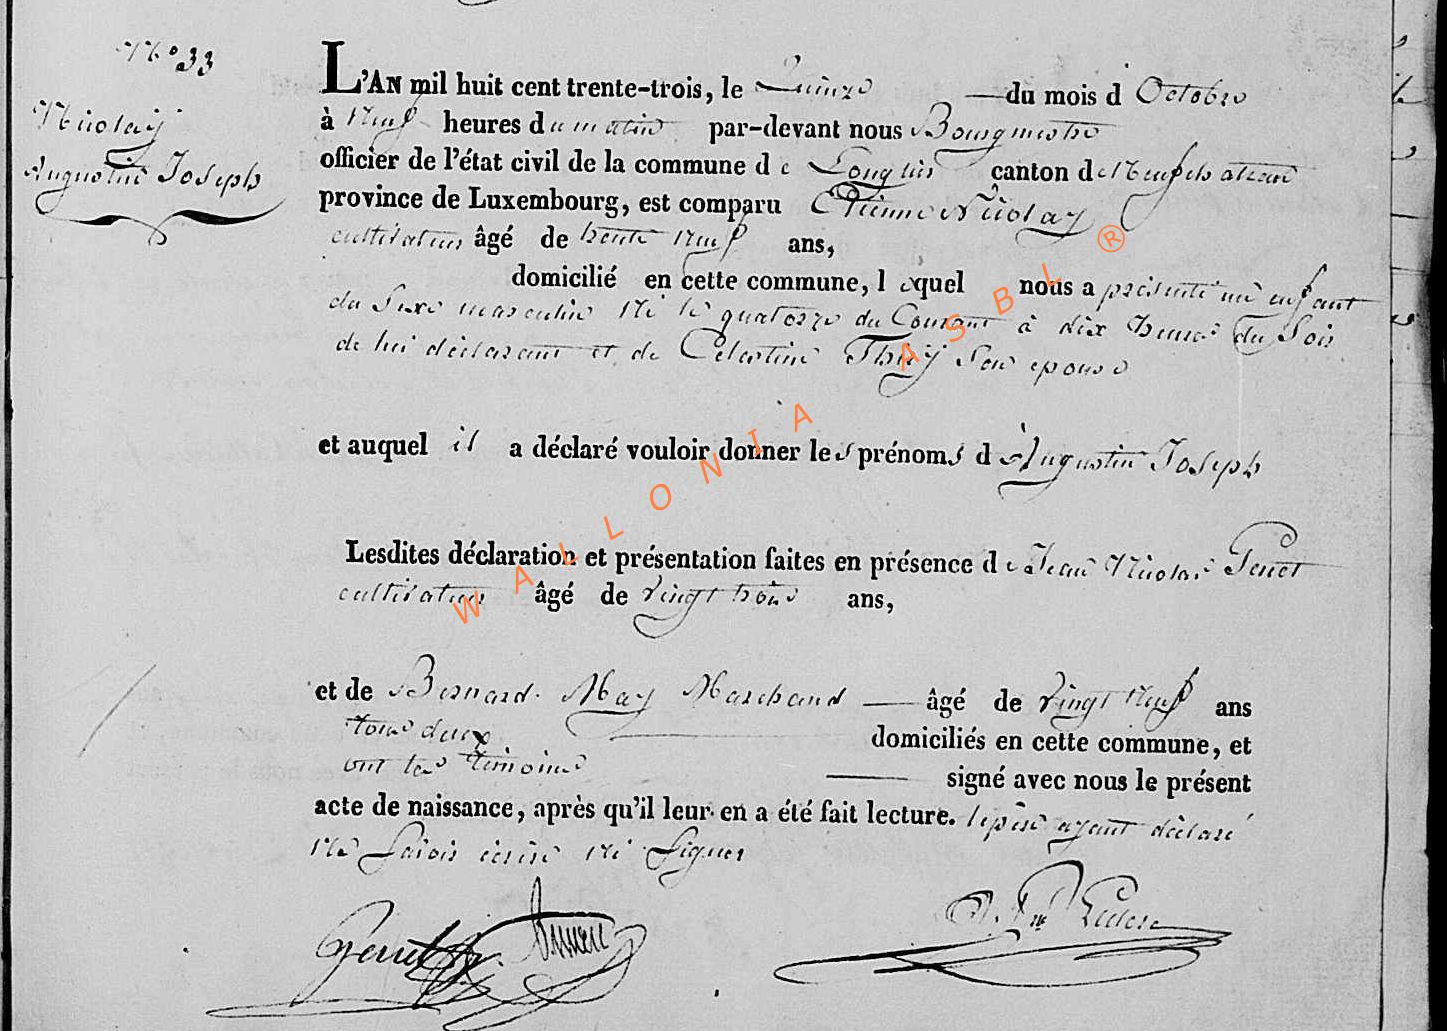 N° 33
Nicolaÿ
Augustin Joseph
L'AN mil huit cent trente-trois, le Quinze du mois d'Octobre
à Neuf heures du matin par-devant nous Bourgmestre
officier de l'état civil de la commune de Longlier canton de Neufchateau
province de Luxembourg, est comparu Etienne Nicolaÿ
cultivateur âgé de trente Neuf ans,
domicilié en cette commune, lequel nous a présenté un enfant
du Sexe masculin Né le quatorze du Courant à dix heures du Soir
de lui déclarant et de Celestine Thiry Son epouse
et auquel il a déclaré vouloir donner les prénoms d'Augustin Joseph
Lesdites déclaration et présentation faites en présence de Jean Nicolas
cultivateur âgé de vingt trois ans,
et de Bernard May Marchand âgé de vingt Neuf ans
tous deux domiciliés en cette commune, et
ont les témoins signé avec nous le présent
acte de naissance, après qu'il leur en a été fait lecture. le père ayant déclaré
Ne Savoir écrire Ni Signer
WALLONIA ASBL ®